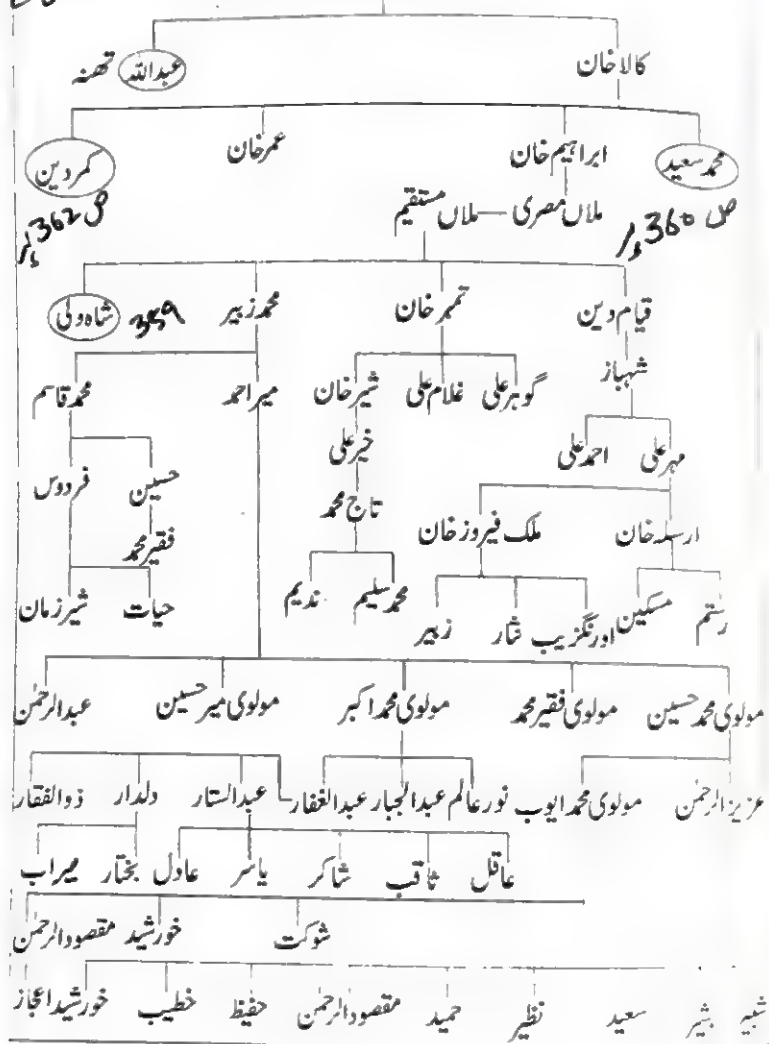 کالا خان عبداللہ تھنہ
محمد سعید ابراہیم خان عمر خان کمر دین
ص 360 پر ملاں مصری ملاں مستقیم ص 362 پر
قیام دین تمبر خان محمد زبیر 359 شاہ ولی
شہباز
گوہر علی غلام علی شیر خان میر احمد محمد قاسم
مہر علی احمد علی خیر علی
حسین فردوس
تاج محمد
ارسلہ خان ملک فیروز خان فقیر محمد
رستم مسکین اورنگزیب نثار زبیر محمد سلیم ندیم حیات شیر زمان
مولوی محمد حسین مولوی فقیر محمد مولوی محمد اکبر مولوی میر حسین عبدالرحمٰن
عزیز الرحمٰن مولوی محمد ایوب نور عالم عبدالجبار عبدالغفار عبدالستار دلدار ذوالفقار
عاقل ثاقب شاکر یاسر عادل بختار میراب
شوکت خورشید مقصود الرحمٰن
شبیر بشیر سعید نظیر حمید مقصود الرحمٰن حفیظ خطیب خورشید اعجاز